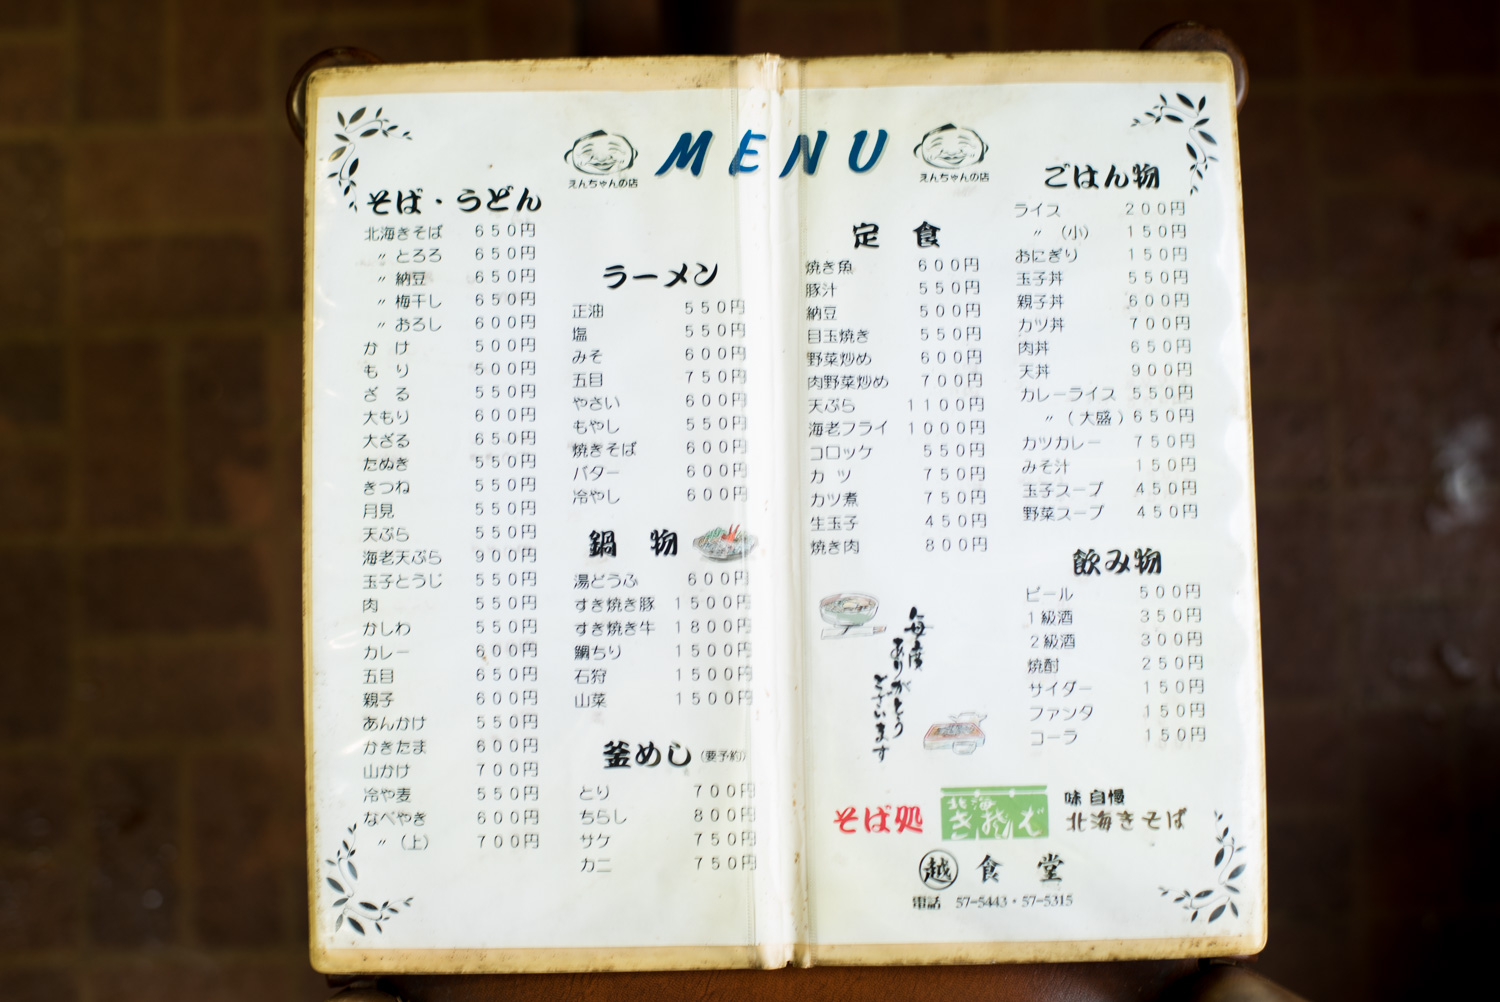 MENU
えんちゃんの店
えんちゃんの店
そば・うどん
北海きそば 650円
〃とろろ 650円
〃納豆 650円
〃梅干し 650円
〃おろし 600円
かけ 500円
もり 500円
ざる 550円
大もり 600円
大ざる 650円
たぬき 550円
きつね 550円
月見 550円
天ぷら 550円
海老天ぷら 900円
玉子とうじ 550円
肉 550円
かしわ 550円
カレー 600円
五目 650円
親子 600円
あんかけ 550円
かきたま 600円
山かけ 700円
冷や麦 550円
なべやき 600円
〃(上) 700円
ラーメン
正油 550円
塩 550円
みそ 600円
五目 750円
やさい 600円
もやし 550円
焼きそば 600円
バター 600円
冷やし 600円
鍋物
湯どうふ 600円
すき焼き豚 1500円
すき焼き牛 1800円
鯛ちり 1500円
石狩 1500円
山菜 1500円
釜めし(要予約)
とり 700円
ちらし 800円
サケ 750円
カニ 750円
定食
焼き魚 600円
豚汁 550円
納豆 500円
目玉焼き 550円
野菜炒め 600円
肉野菜炒め 700円
天ぷら 1100円
海老フライ 1000円
コロッケ 550円
カツ 750円
カツ煮 750円
生玉子 450円
焼き肉 800円
毎度
ありがとう
ございます
ごはん物
ライス 200円
〃(小) 150円
おにぎり 150円
玉子丼 550円
親子丼 600円
カツ丼 700円
肉丼 650円
天丼 900円
カレーライス 550円
〃(大盛) 650円
カツカレー 750円
みそ汁 150円
玉子スープ 450円
野菜スープ 450円
飲み物
ビール 500円
1級酒 350円
2級酒 300円
焼酎 250円
サイダー 150円
ファンタ 150円
コーラ 150円
そば処
北海
きそば
味自慢
北海きそば
越食堂
電話 57-5443・57-5315